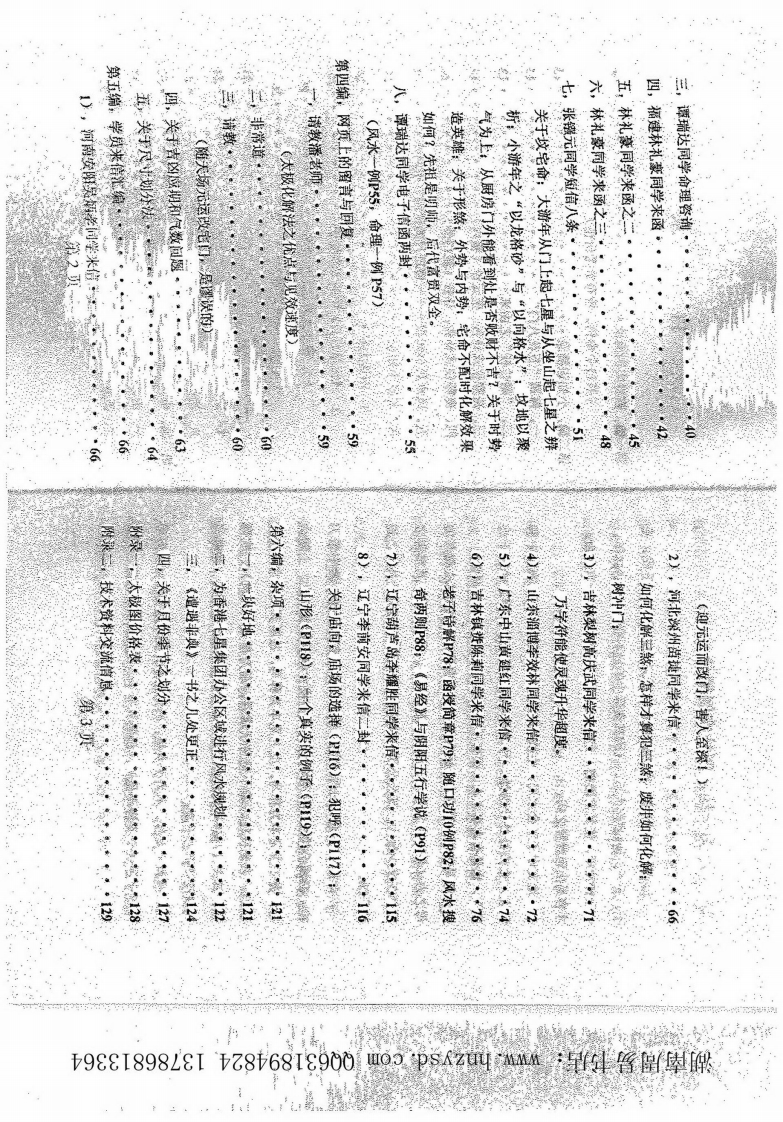 三、谭瑞达同学命理咨询・・・・・・・・・・40
四、福建林礼豪同学来函・・・・・・・・・・42
五、林礼豪同学来函之二・・・・・・・・・・45
六、林礼豪同学来函之三・・・・・・・・・・48
七、张强元同学短信八条・・・・・・・・・・51
关于坟宅命；大游年从门上起七星与从坐山起七星之辨
析；小游年之“以龙格砂”与“以向格水”；坟地以聚
气为上；从厨房门外能看到灶是否败财不吉？关于时势
造英雄；关于形煞；外势与内势；宅命不配时化解效果
如何？先祖是明师，后代富贵双全。
八、谭瑞达同学电子信函两封・・・・・・・・・・55
（风水一例P55，命理一例P57）
第四编，网页上的留言与回复・・・・・・・・・・59
一、请教潘老师・・・・・・・・・・59
（太极化解法之优点与见效速度）
二、非常道・・・・・・・・・・60
三、请教・・・・・・・・・・60
（随大场元运改宅门，是谬误的）
四、关于吉凶应期和气数问题・・・・・・・・・・63
五、关于尺寸划分法・・・・・・・・・・64
第五编，学员来信汇编・・・・・・・・・・66
1），河南安阳吴 同学来信・・・・・・・・・・66
第2页
（迎元运而改门，害人至深！）
2），河北深州苗捷同学来信・・・・・・・・・・66
如何化解三煞；怎样才算犯三煞；废井如何化解；
树冲门；
3），吉林梨树高庆武同学来信・・・・・・・・・・71
万字符能使灵魂升华超度。
4），山东淄博李效林同学来信・・・・・・・・・・72
5），广东中山黄建红同学来信・・・・・・・・・・74
6），吉林镇赉陈莉同学来信・・・・・・・・・・76
老子诗解P78；函授简章P79；随口功10例P82；风水搜
奇两则P88；《易经》与阴阳五行学说（P91）
7），辽宁葫芦岛李耀胜同学来信・・・・・・・・・・115
8），辽宁李前安同学来信二封・・・・・・・・・・116
关于庙向，庙场的选择（P116）；犯呼（P117）；
山形（P118）；一个真实的例子（P119）；
第六编，杂项・・・・・・・・・・121
一、一块好地・・・・・・・・・・121
二、为香港七星集团办公区域进行风水规划・・・・・・・・・・122
三、《遭遇非典》一书之几处更正・・・・・・・・・・124
四、关于月份季节之划分・・・・・・・・・・127
附录一，太极图价格表・・・・・・・・・・128
附录二，技术资料交流信息・・・・・・・・・・129
第3页
湖南周易书店：www.hnzysd.com QQ631894824 13786813364